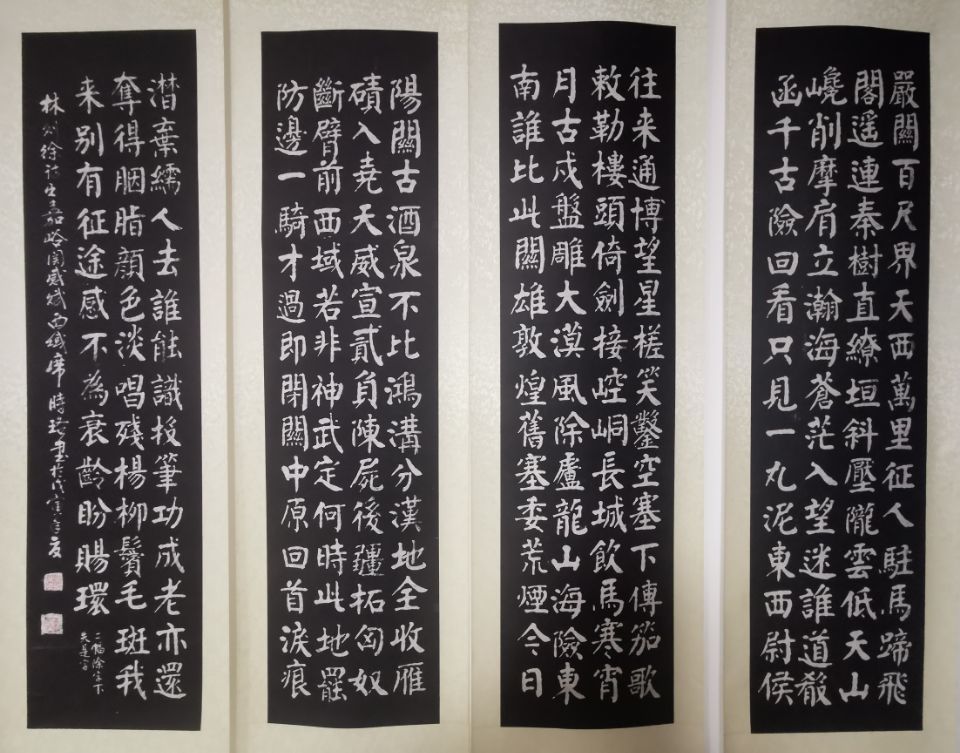 嚴關百尺界天西萬里征人駐馬蹄飛
閣遥連秦樹直繚垣斜壓隴雲低天山
巉削摩肩立瀚海蒼茫入望迷誰道殽
函千古險回看只見一丸泥東西尉侯
往来通博望星槎笑鑿空塞下傳笳歌
敕勒樓頭倚劍接崆峒長城飲馬寒宵
月古戍盤雕大漠風除盧龍山海險東
南誰比此關雄敦煌舊塞委荒煙今日
陽關古酒泉不比鴻溝分漢地全收雁
磧入堯天威宣貳負陳屍後疆拓匈奴
斷臂前西域若非神武定何時此地罷
防邊一騎才過即閉關中原回首淚痕
潸棄繻人去誰能識投筆功成老亦還
奪得胭脂顏色淡唱殘楊柳鬢毛斑我
来别有征途感不為衰齡盼賜環
林則徐詩出嘉峪関感賦 席時珞書於戊寅年夏
二幅除字下
失是字